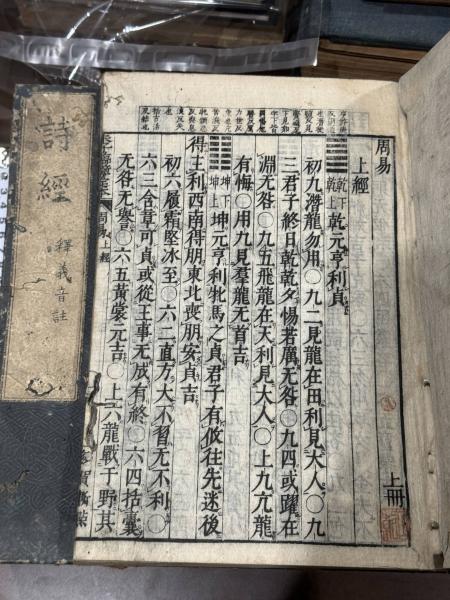 周易
上冊
上經
乾下
乾上
乾元亨利貞
初九潛龍勿用○九二見龍在田利見大人○九
三君子終日乾乾夕惕若厲无咎○九四或躍在
淵无咎○九五飛龍在天利見大人○上九亢龍
有悔○用九見羣龍无首吉
坤下
坤上
坤元亨利牝馬之貞君子有攸往先迷後
得主利西南得朋東北喪朋安貞吉
初六履霜堅冰至○六二直方大不習无不利○
六三含章可貞或從王事无成有終○六四括囊
无咎无譽○六五黃裳元吉○上六龍戰于野其
周易上經
詩經
釋義音註